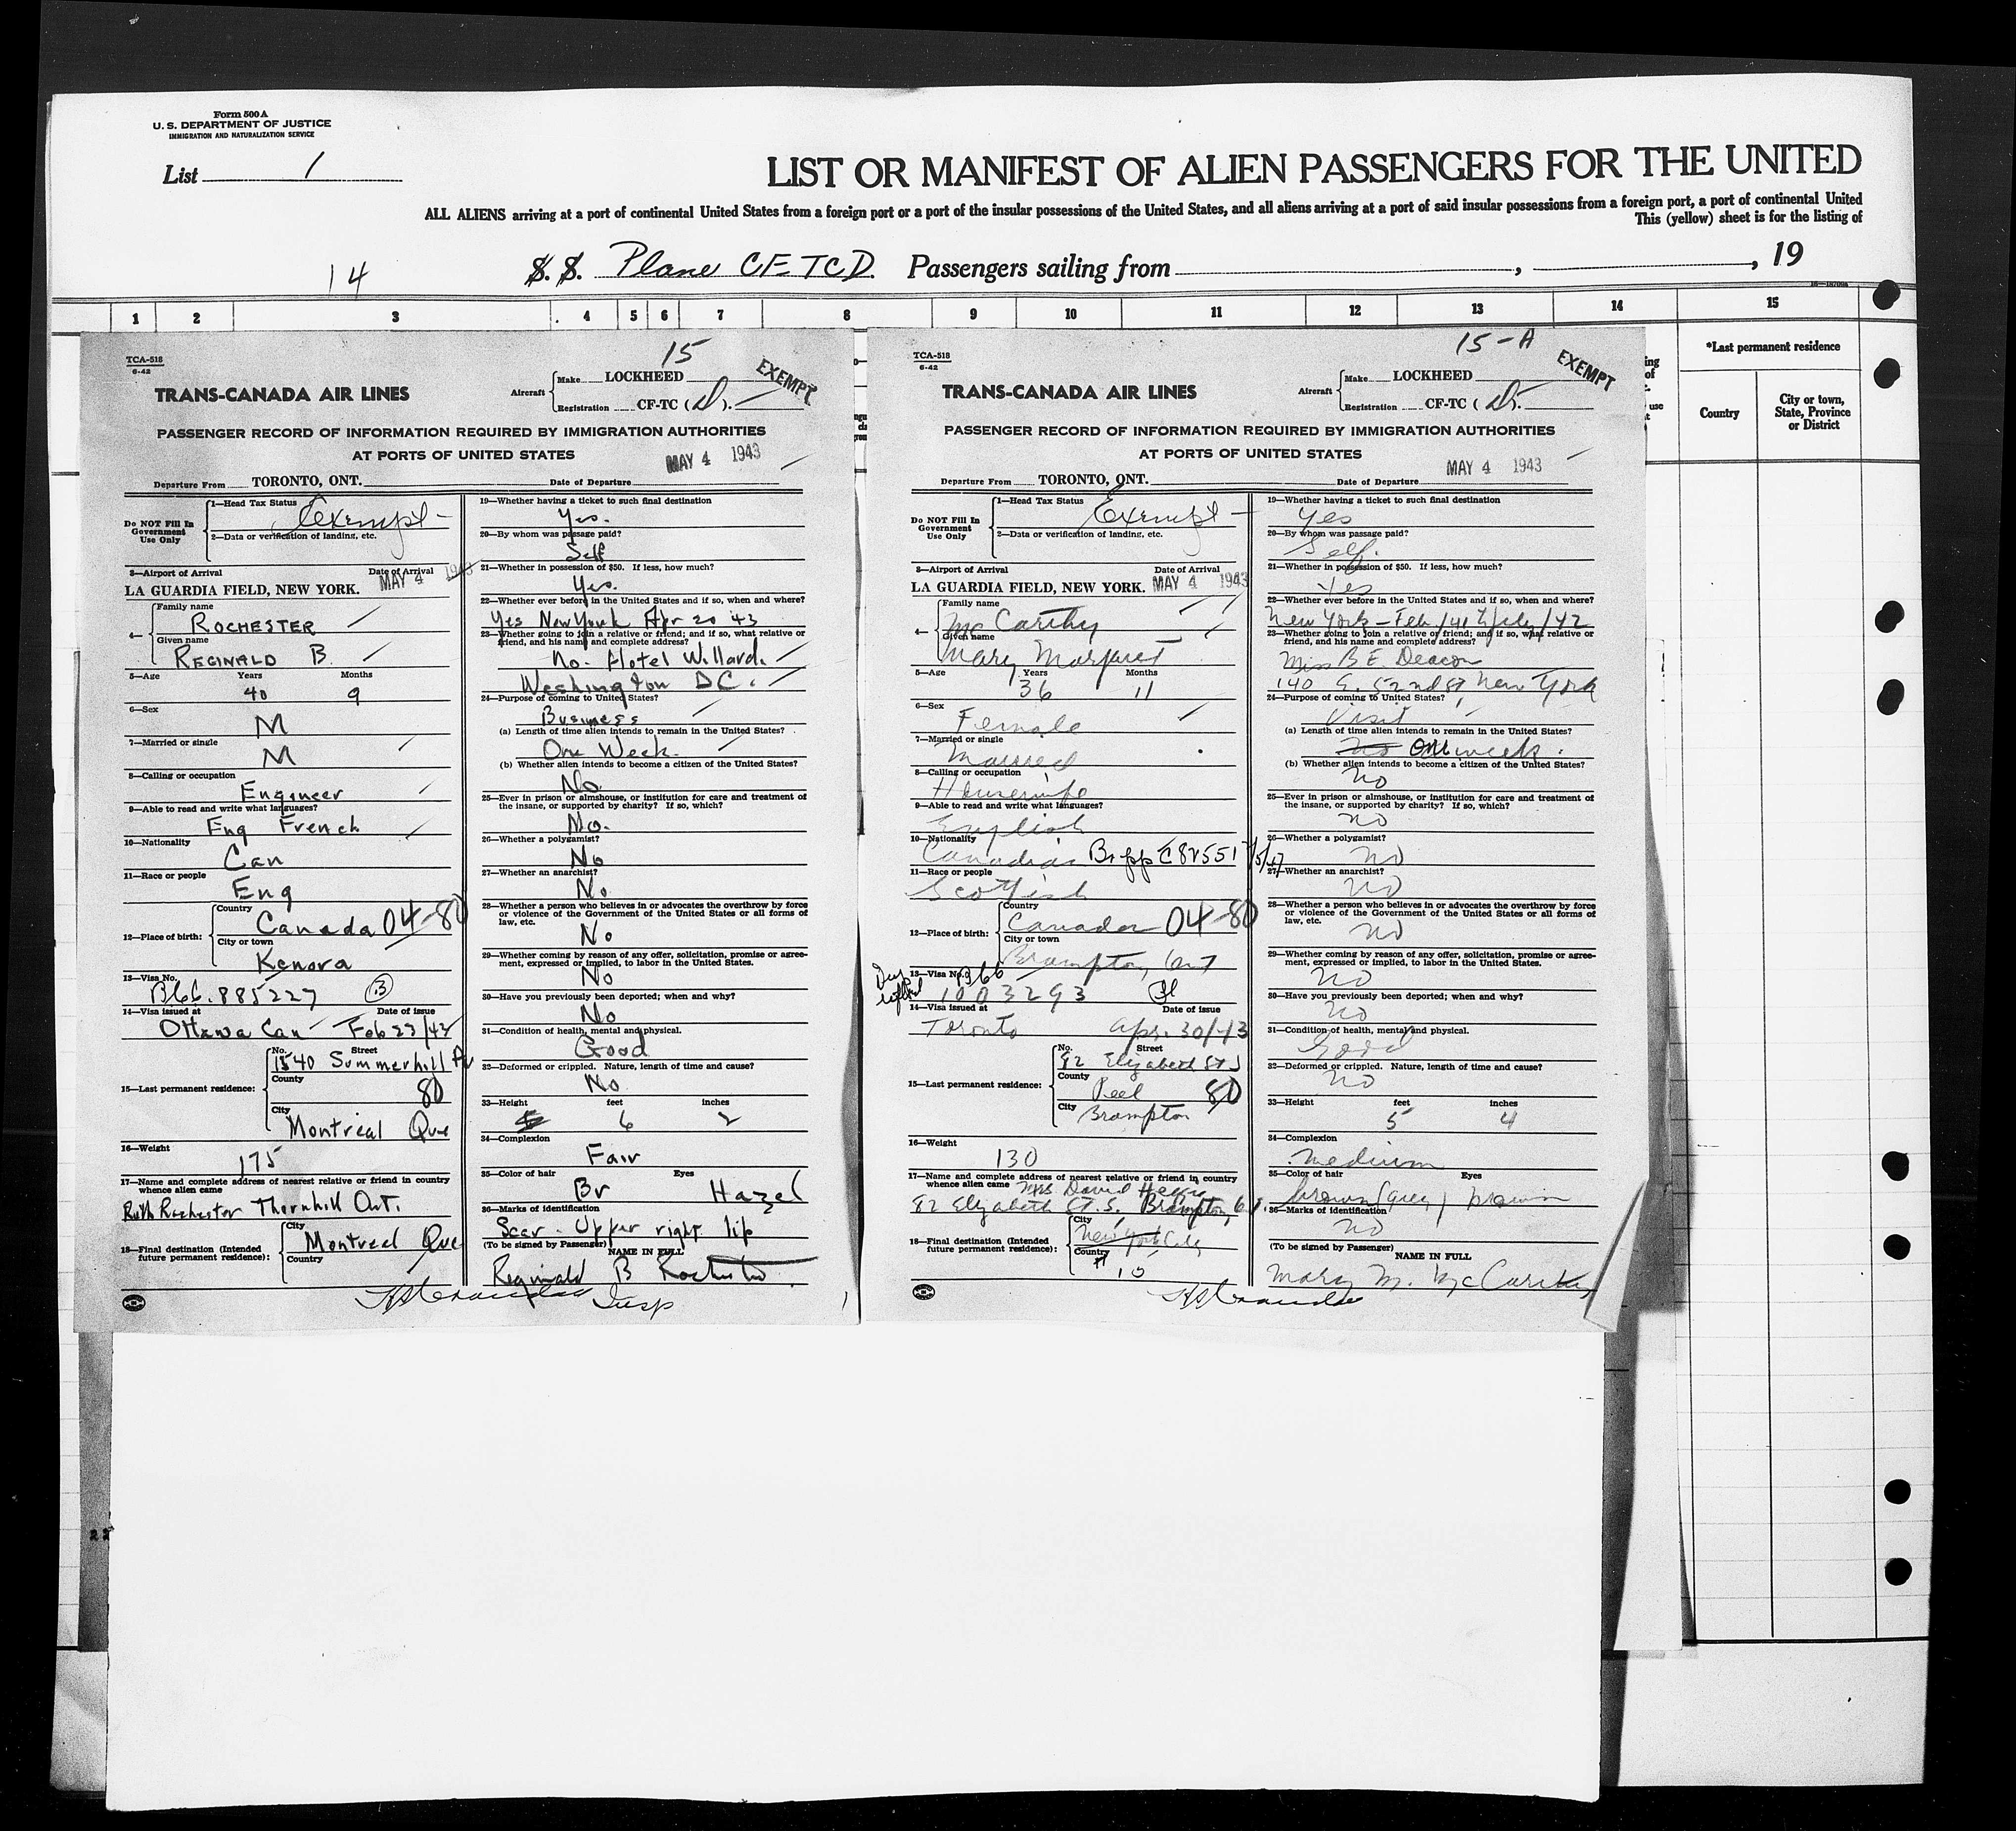 Form 500 A
U. S. DEPARTMENT OF JUSTICE
IMMIGRATION AND NATURALIZATION SERVICE
List 1
LIST OR MANIFEST OF ALIEN PASSENGERS FOR THE UNITED
ALL ALIENS arriving at a port of continental United States from a foreign port or a port of the insular possessions of the United States, and all aliens arriving at a port of said insular possessions from a foreign port, a port of continental United
This (yellow) sheet is for the listing of
14 S. S. Plane CF-TCD. Passengers sailing from , , 19
1 2 3 4 5 6 7 8 9 10 11 12 13 14 15
*Last permanent residence
Country
City or town, State, Province or District
15
TCA-518
6-42
EXEMPT
TRANS-CANADA AIR LINES
Aircraft
Make LOCKHEED
Registration CF-TC (D).
PASSENGER RECORD OF INFORMATION REQUIRED BY IMMIGRATION AUTHORITIES
AT PORTS OF UNITED STATES
MAY 4 1943
Departure From TORONTO, ONT. Date of Departure
Do NOT Fill In Government Use Only
1—Head Tax Status
Exempt
2—Data or verification of landing, etc.
3—Airport of Arrival Date of Arrival
LA GUARDIA FIELD, NEW YORK. MAY 4 1943
4—
Family name
ROCHESTER
Given name
REGINALD B.
5—Age Years Months
40 9
6—Sex
M
7—Married or single
M
8—Calling or occupation
Engineer
9—Able to read and write what languages?
Eng French
10—Nationality
Can
11—Race or people
Eng
12—Place of birth:
Country
Canada 04-80
City or town
Kenora
13—Visa No.
B6C. 885227 3
14—Visa issued at Date of issue
Ottawa Can Feb 23/43
15—Last permanent residence:
No. Street
1540 Summerhill Av
County
80
City
Montreal Que
16—Weight
175
17—Name and complete address of nearest relative or friend in country whence alien came
Ruth Rochester Thornhill Ont.
18—Final destination (Intended future permanent residence):
City
Montreal Que
Country
19—Whether having a ticket to such final destination
Yes.
20—By whom was passage paid?
Self
21—Whether in possession of $50. If less, how much?
Yes.
22—Whether ever before in the United States and if so, when and where?
Yes New York Apr 20 43
23—Whether going to join a relative or friend; and if so, what relative or friend, and his name and complete address?
No. Hotel Willard.
Washington D.C.
24—Purpose of coming to United States?
Business
(a) Length of time alien intends to remain in the United States?
One Week.
(b) Whether alien intends to become a citizen of the United States?
No.
25—Ever in prison or almshouse, or institution for care and treatment of the insane, or supported by charity? If so, which?
No.
26—Whether a polygamist?
No
27—Whether an anarchist?
No
28—Whether a person who believes in or advocates the overthrow by force or violence of the Government of the United States or all forms of law, etc.
No
29—Whether coming by reason of any offer, solicitation, promise or agreement, expressed or implied, to labor in the United States.
No
30—Have you previously been deported; when and why?
No
31—Condition of health, mental and physical.
Good
32—Deformed or crippled. Nature, length of time and cause?
No
33—Height feet inches
6 2
34—Complexion
Fair
35—Color of hair Eyes
Br Hazel
36—Marks of identification
Scar - Upper right lip
(To be signed by Passenger) NAME IN FULL
Reginald B Rochester
Insp
15-A
TCA-518
6-42
EXEMPT
TRANS-CANADA AIR LINES
Aircraft
Make LOCKHEED
Registration CF-TC (D).
PASSENGER RECORD OF INFORMATION REQUIRED BY IMMIGRATION AUTHORITIES
AT PORTS OF UNITED STATES
MAY 4 1943
Departure From TORONTO, ONT. Date of Departure
Do NOT Fill In Government Use Only
1—Head Tax Status
Exempt
2—Data or verification of landing, etc.
3—Airport of Arrival Date of Arrival
LA GUARDIA FIELD, NEW YORK. MAY 4 1943
4—
Family name
McCarthy
Given name
Mary Margaret
5—Age Years Months
36 11
6—Sex
Female
7—Married or single
Married
8—Calling or occupation
Housewife
9—Able to read and write what languages?
English
10—Nationality
Canadian Br pp C82551
11—Race or people
Scottish
12—Place of birth:
Country
Canada 04-80
City or town
Brampton, Ont
13—Visa No.
1003293
14—Visa issued at Date of issue
Toronto Apr. 30/43
15—Last permanent residence:
No. Street
82 Elizabeth St S
County
Peel 80
City
Brampton
16—Weight
130
17—Name and complete address of nearest relative or friend in country whence alien came
Mrs David
82 Elizabeth St. S. Brampton,
18—Final destination (Intended future permanent residence):
City
New York City
Country
10
19—Whether having a ticket to such final destination
Yes
20—By whom was passage paid?
Self.
21—Whether in possession of $50. If less, how much?
Yes
22—Whether ever before in the United States and if so, when and where?
New York - Feb/41 July/42
23—Whether going to join a relative or friend; and if so, what relative or friend, and his name and complete address?
Miss B E. Deacon
140 E. 52nd St, New York
24—Purpose of coming to United States?
Visit
(a) Length of time alien intends to remain in the United States?
One week.
(b) Whether alien intends to become a citizen of the United States?
No
25—Ever in prison or almshouse, or institution for care and treatment of the insane, or supported by charity? If so, which?
no
26—Whether a polygamist?
no
27—Whether an anarchist?
no
28—Whether a person who believes in or advocates the overthrow by force or violence of the Government of the United States or all forms of law, etc.
no
29—Whether coming by reason of any offer, solicitation, promise or agreement, expressed or implied, to labor in the United States.
no
30—Have you previously been deported; when and why?
no
31—Condition of health, mental and physical.
Good
32—Deformed or crippled. Nature, length of time and cause?
no
33—Height feet inches
5 4
34—Complexion
Medium
35—Color of hair Eyes
brown (grey) brown
36—Marks of identification
no
(To be signed by Passenger) NAME IN FULL
Mary M. McCarthy